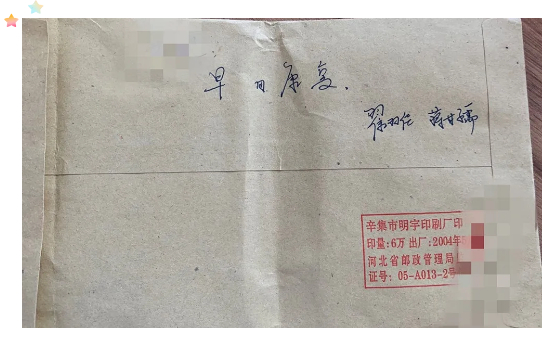 早日康复.
蒋甘孺
辛集市明宇印刷厂印
印量:6万 出厂:2004年
河北省邮政管理局
证号: 05-A013-2号